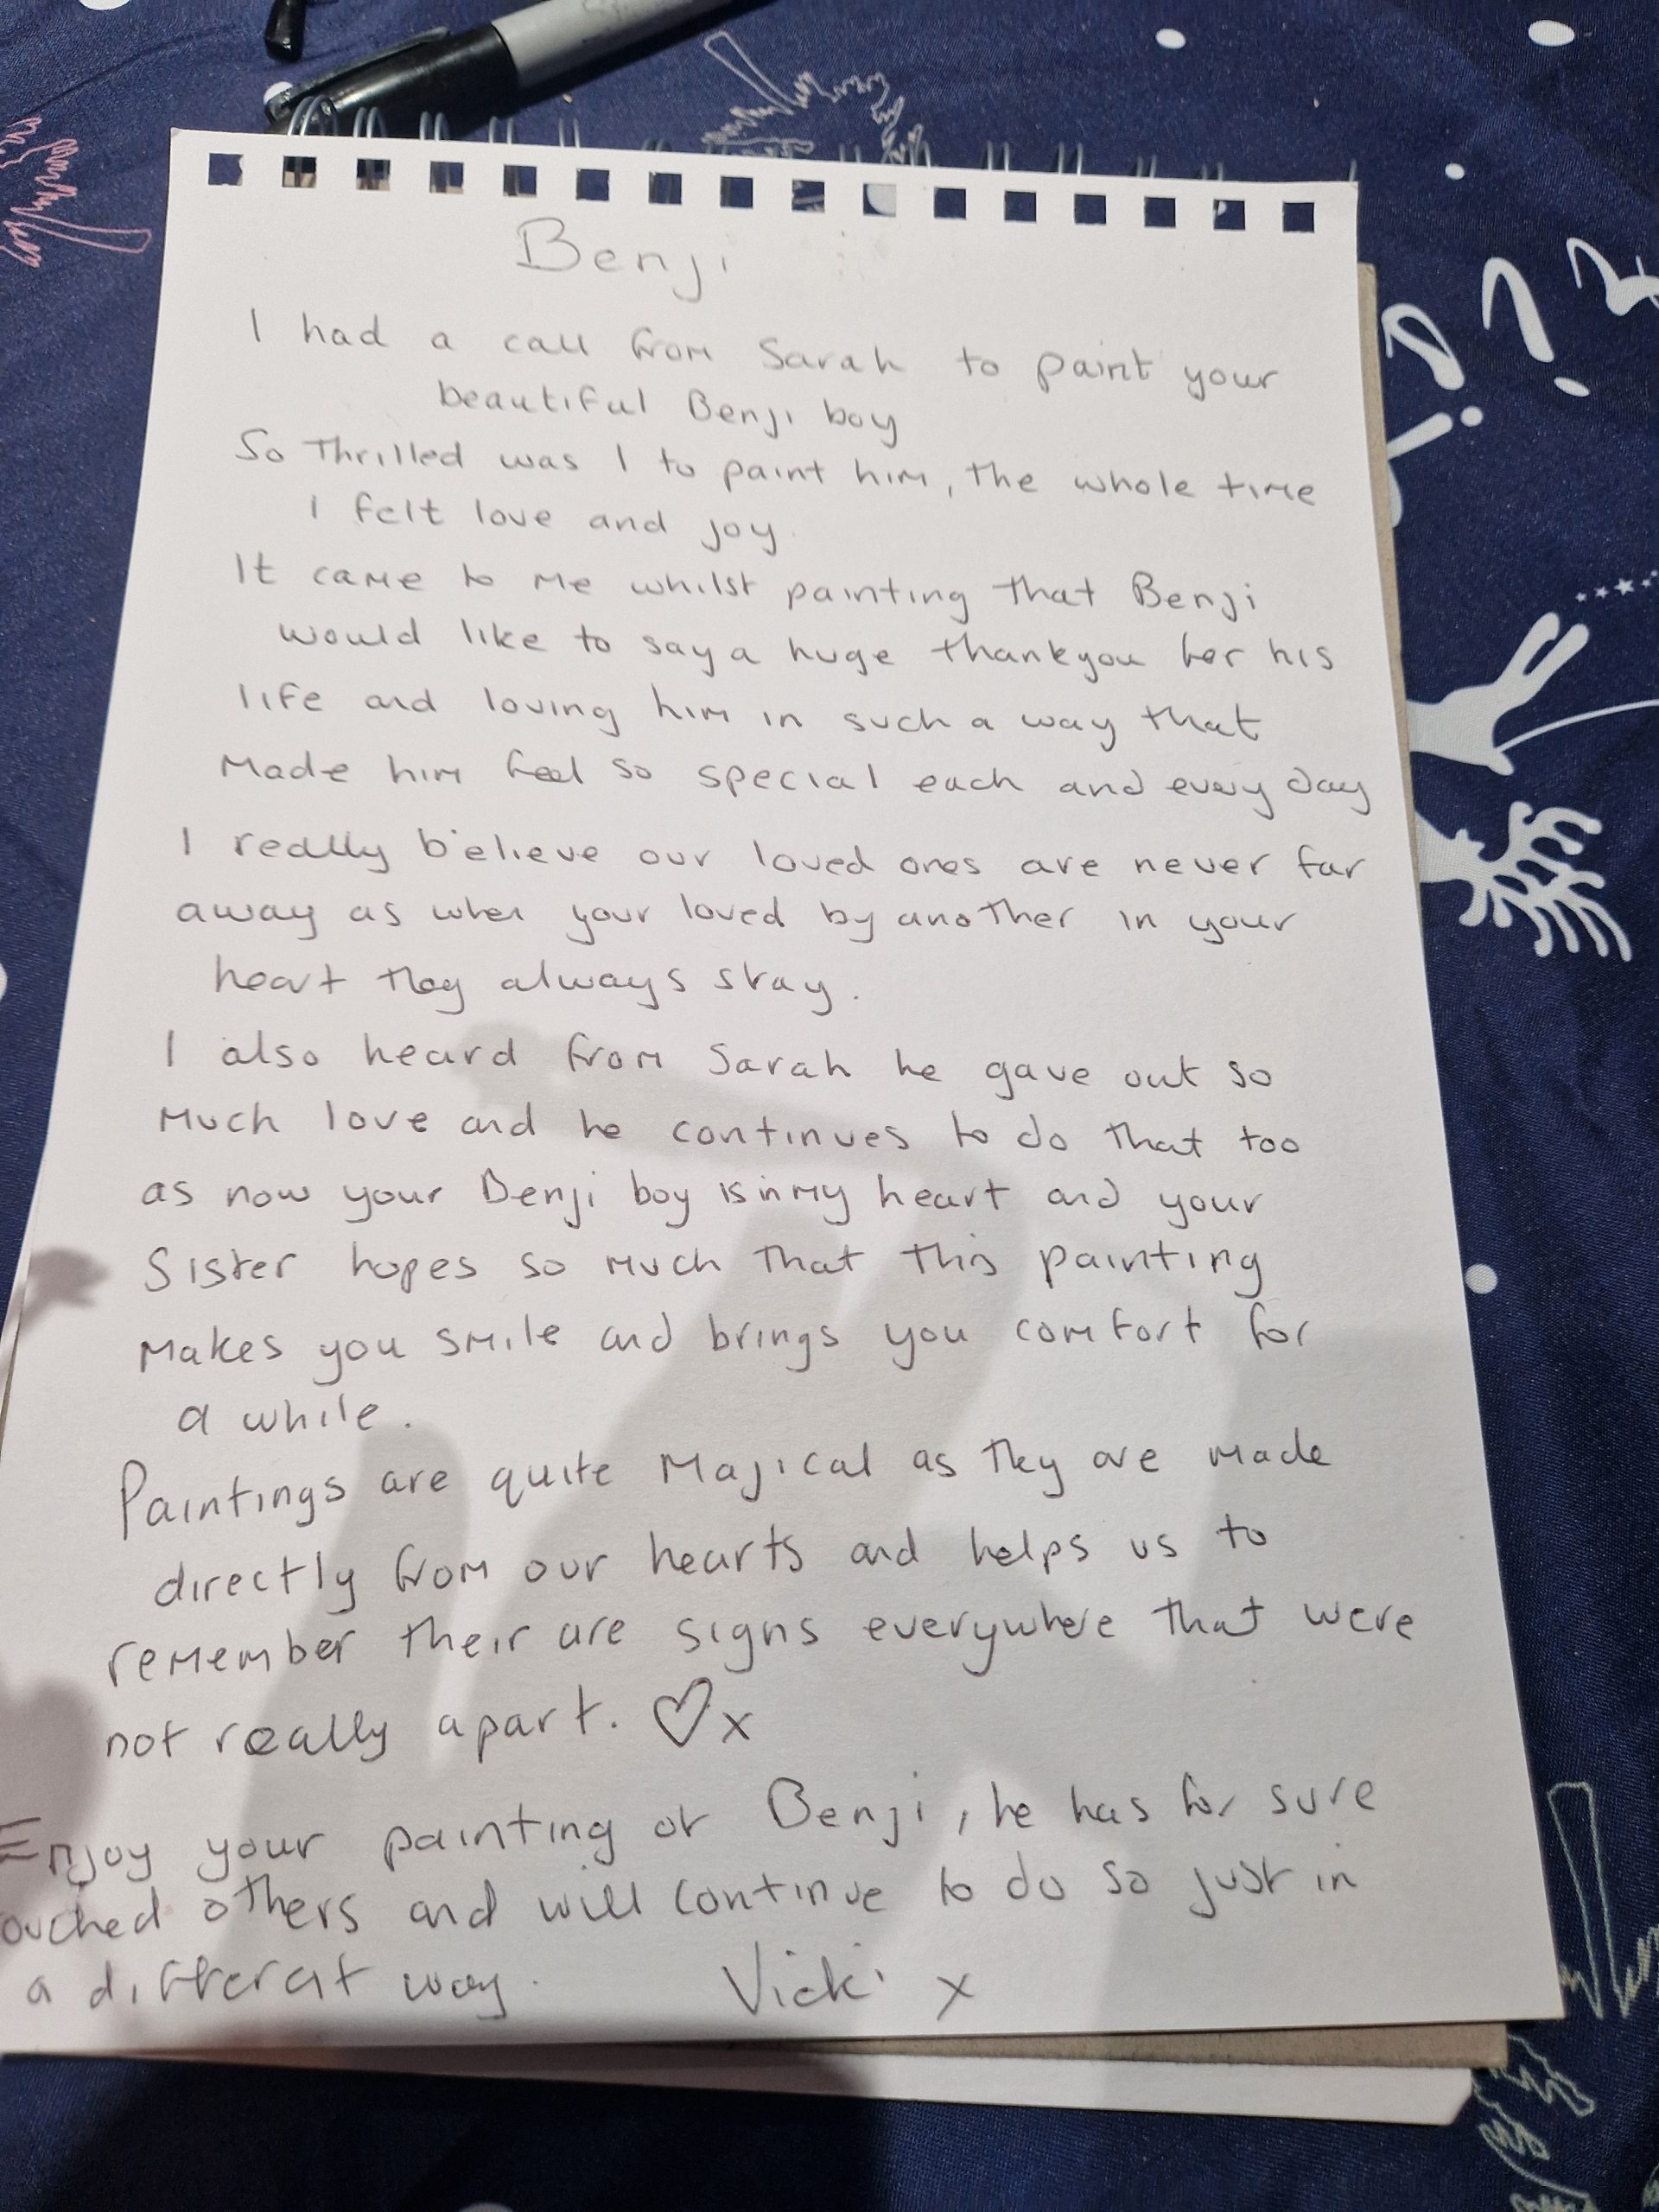 Benji
I had a call from Sarah to paint your
beautiful Benji boy
So Thrilled was I to paint him, the whole time
I felt love and joy.
It came to me whilst painting that Benji
would like to say a huge thankyou for his
life and loving him in such a way that
made him feel so special each and every day
I really believe our loved ones are never far
away as when your loved by another in your
heart they always stay.
I also heard from Sarah he gave out so
much love and he continues to do that too
as now your Benji boy is in my heart and your
Sister hopes so much that this painting
makes you smile and brings you comfort for
a while.
Paintings are quite majical as they are made
directly from our hearts and helps us to
remember their are signs everywhere that were
not really apart. ♡x
Enjoy your painting of Benji, he has for sure
ouched others and will continue to do so just in
a different way. Vicki x